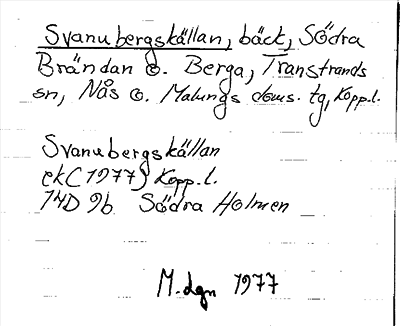 Svanubergskällan, bäck, Södra
Brändan o. Berga, Transtrands
sn, Nås o. Malungs doms. tg, Kopp.l.
Svanubergskällan
ek(1977) Kopp.l.
14D 9b Södra Holmen
M.dgn 1977